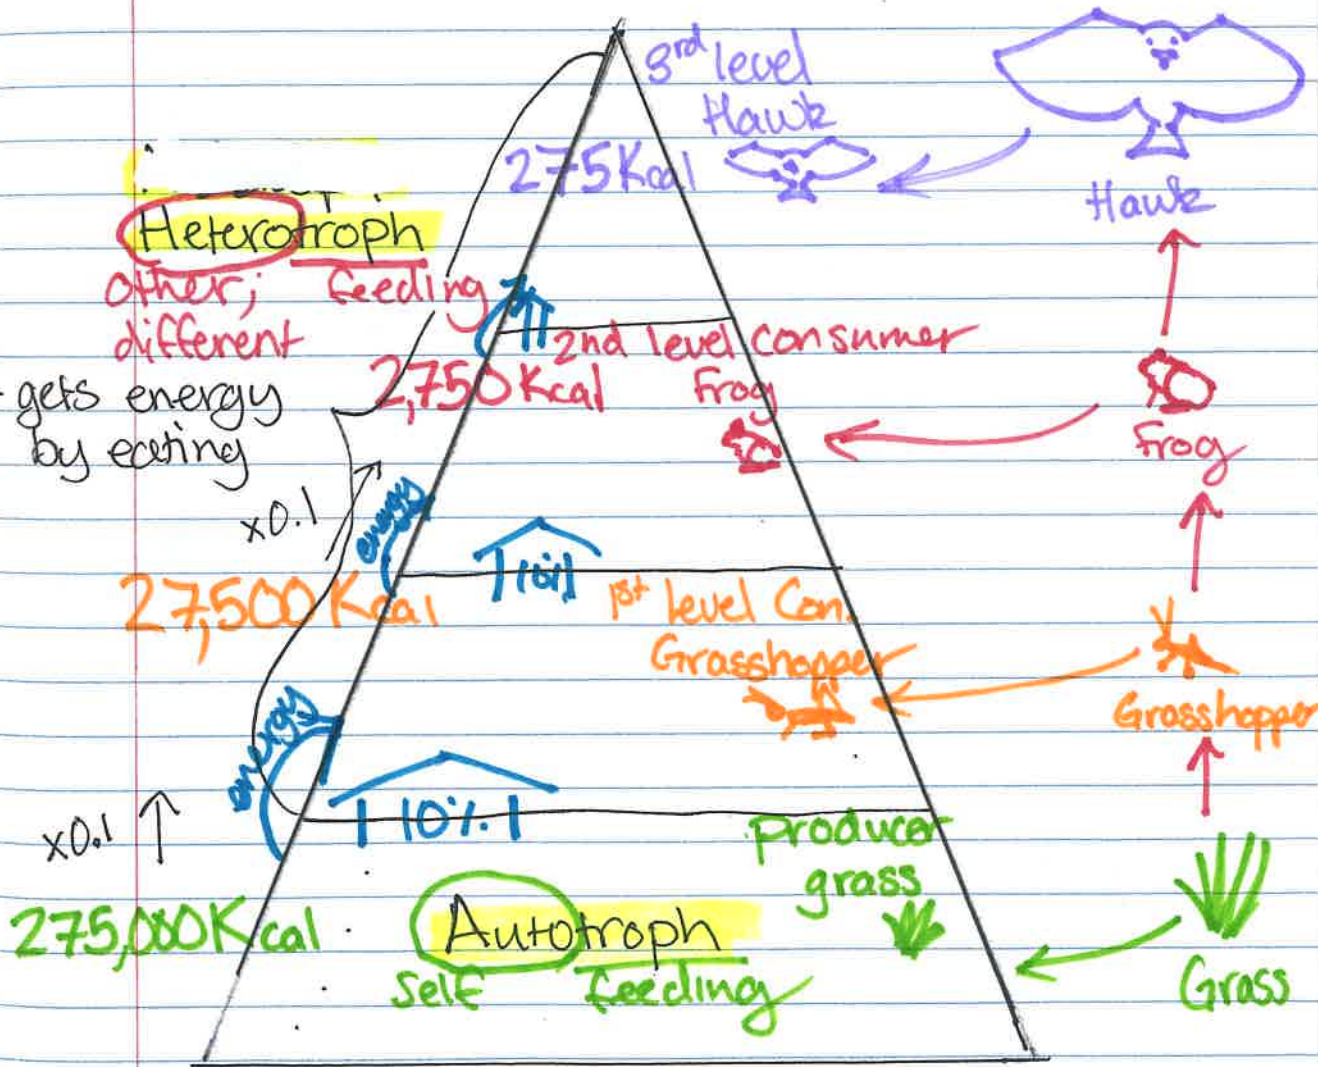 3rd level
Hawk
275 Kcal
Hawk
Heterotroph
other; feeding
different
- gets energy
by eating
2nd level consumer
2,750 Kcal
frog
frog
x0.1
energy
10%
27,500 Kcal
1st level Con.
Grasshopper
Grasshopper
energy
10%
x0.1
producer
grass
275,000 Kcal
Autotroph
self feeding
Grass